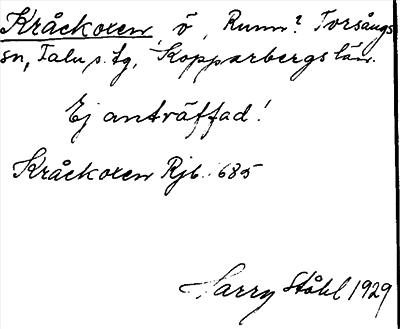 Kråckoren, ö, Runn? Torsångs
sn, Falu s. tg, Kopparbergs län.
Ej anträffad!
Kråckoren Rjb. 685
Harry Ståhl 1929